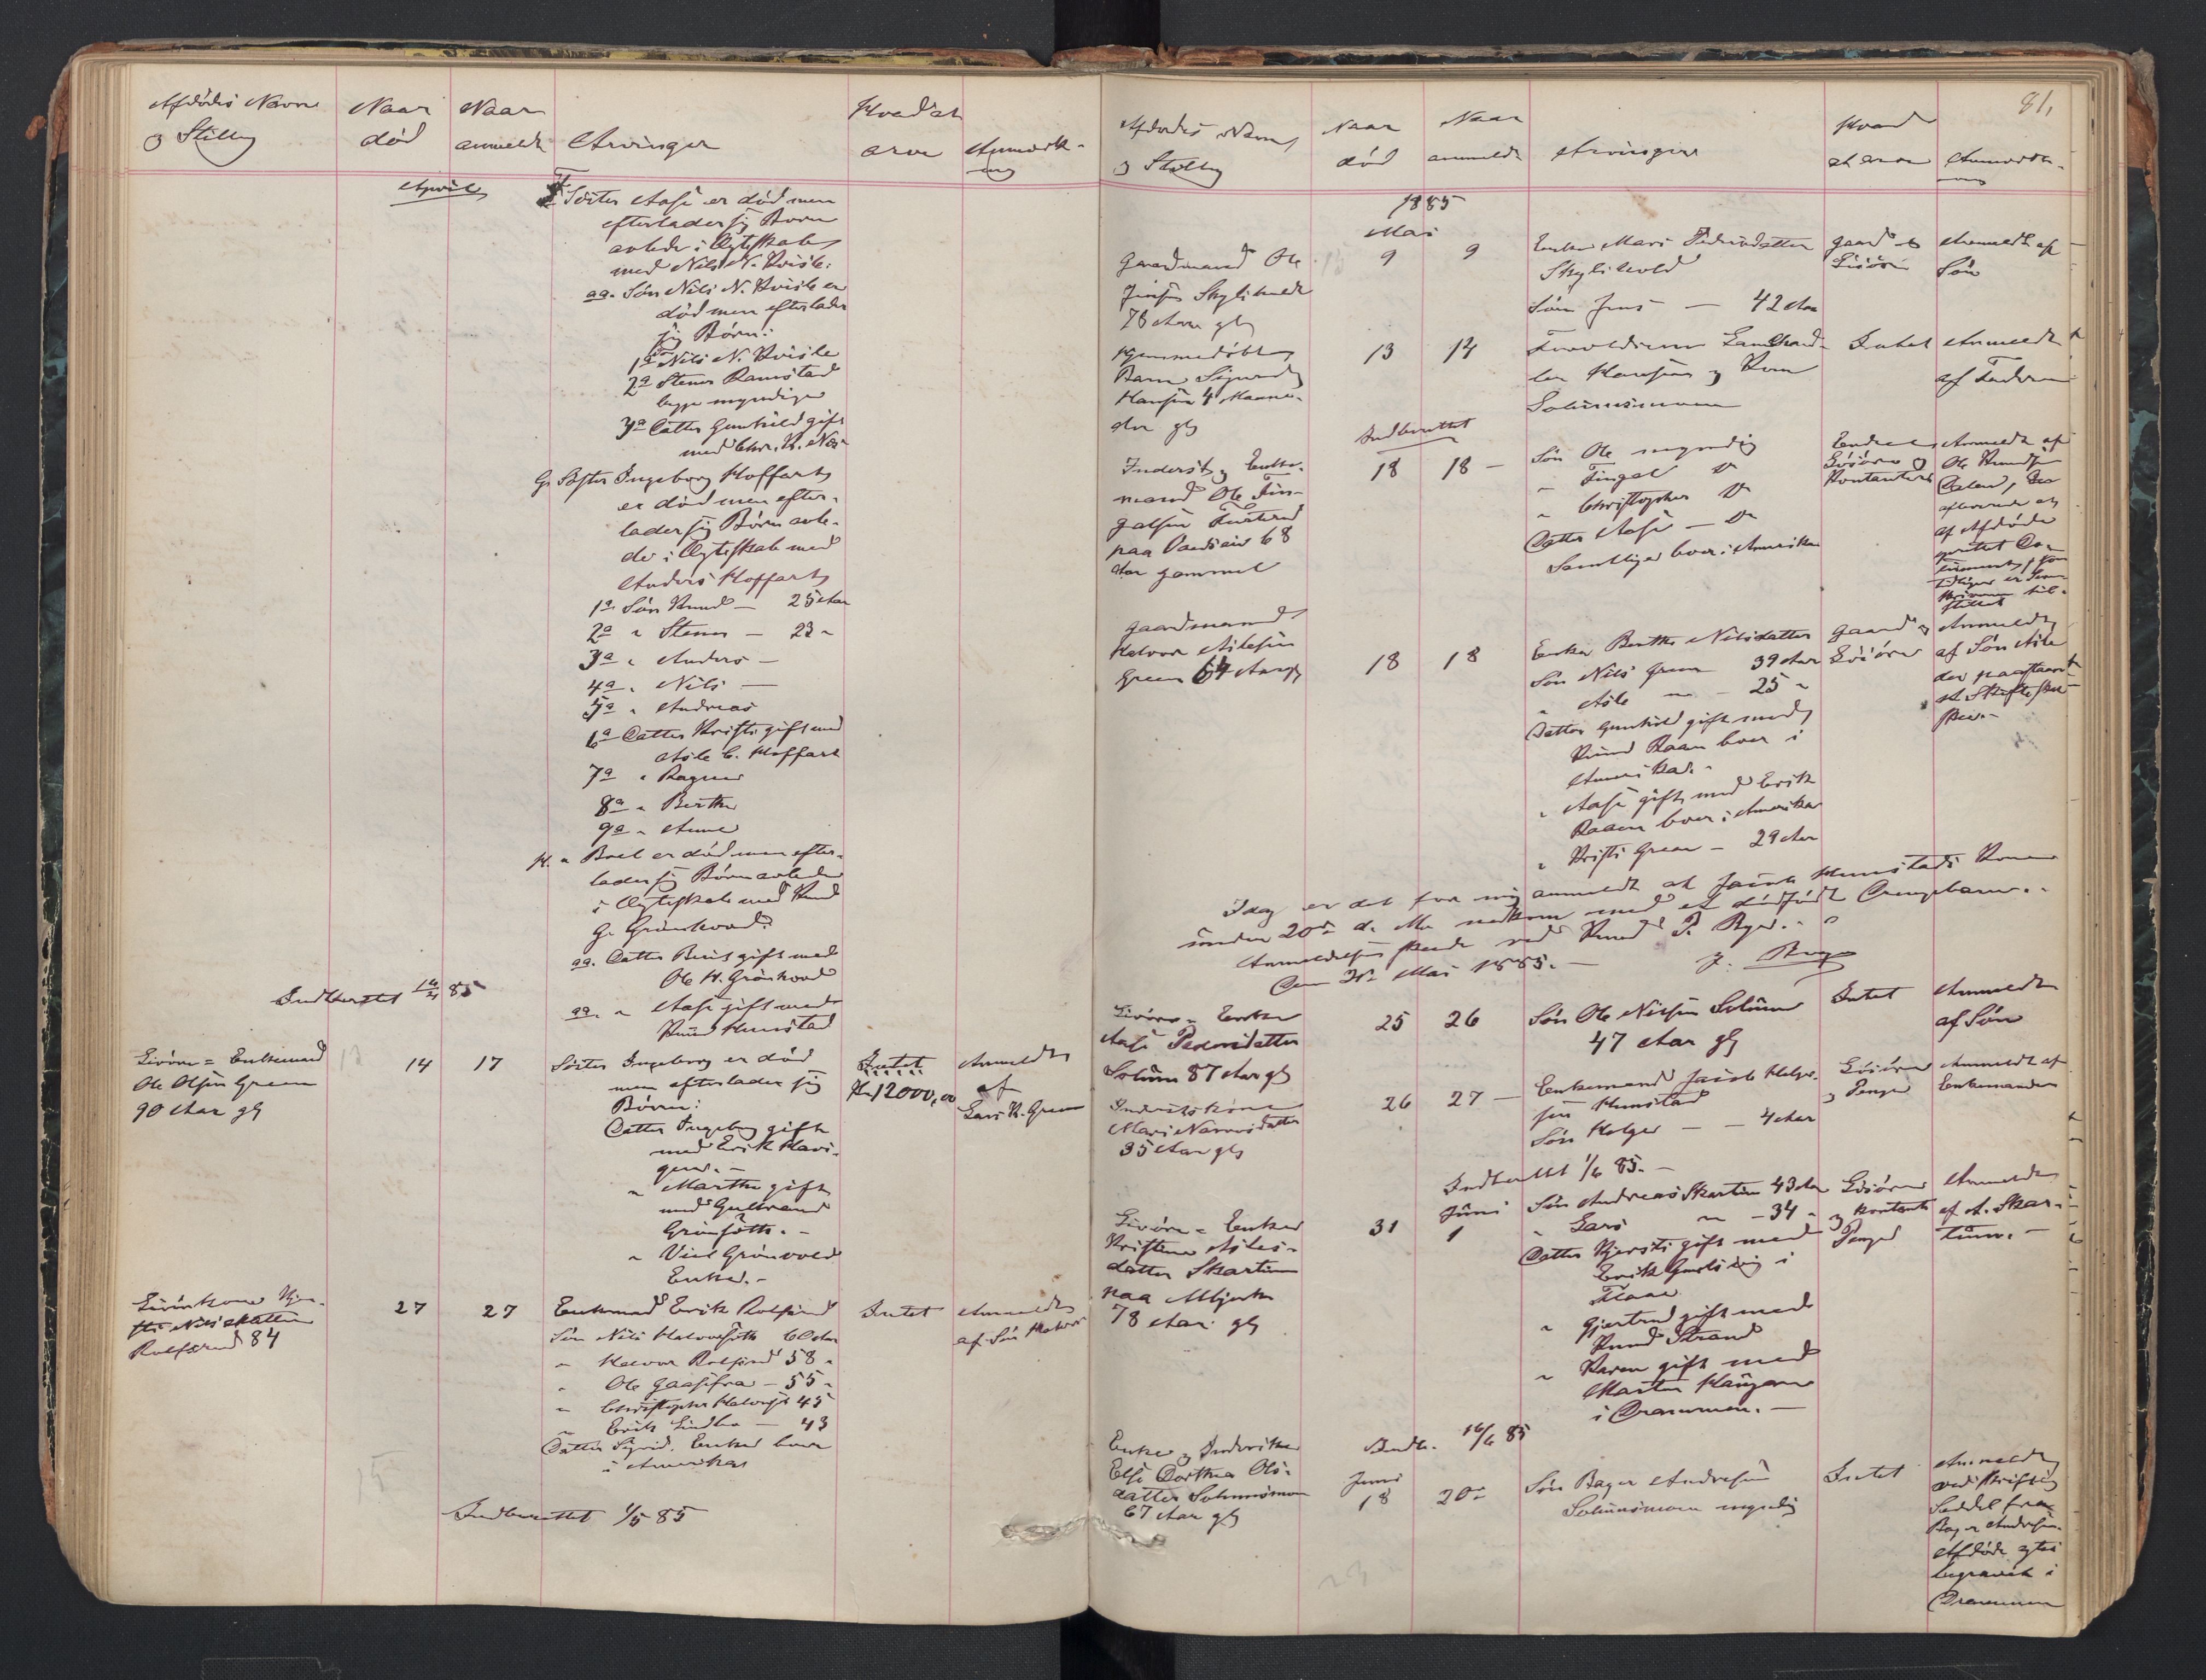 Afdødes Navn
og Stilling
Naar
død
Naar
anmeldt
Arvinger
Hvad at
arve
Anmærk-
ning
April
F. Søster Aase er død men
efterlader sig Børn
avlede i Ægteskab
med Nils N. Kvisle:
aa. Søn Nils N. Kvisle er
død men efterlader
sig Børn:
1a Nils N. Kvisle
2a Stener Ramstad
begge myndige
3a Datter Gunhild gift
med Chr. K. Næs
G. Søster Ingeborg Hoffart
er død men efter-
lader sig Børn avle-
de i Ægteskab med
Anders Hoffart
1a Søn Knud — 25 Aar
2a " Stener — 23 "
3a " Anders —
4a " Nils —
5a " Andreas
6a Datter Kristi gift med
Asle C. Hoffart
7a " Ragne
8a " Berthe
9a " Anne
H. " Boel er død men efter-
lader sig Børn avlede
i Ægteskab med Knud
G. Grønhovd:
aa. Datter Berit gift med
Ole H. Grønhovd
aa. " Aase gift med
Knud Hunstad
Indberettet 16/4 85
Livøre = Enkemand
Ole Olsen Green
90 Aar gl
14
17
Søster Ingeborg er død
men efterlader sig
Børn:
Datter Ingeborg gift
med Erik Havi-
gern. —
" Marthe gift
med Gulbrand
" Viel Grønvold
Enke. —
Intet
Kr 12000,00
Anmeldt
af
Lars K. Green
Livørkone Kjer-
sti Nilsdatter
Rolfsrud 84
27
27
Enkemand Erik Rolfsrud
Søn Nils Halvorsøth 60 Aar
" Halvor Rolfsrud 58 "
" Ole — 55 "
" Christopher 45
" Erik — 43
Datter Sigrid, Enke boer
i Amerika
Intet
Anmeldt
af Søn Halvor
Indberettet 1/5 85
81,
Afdødes Navn
og Stilling
Naar
død
Naar
anmeldt
Arvinger
Hvad
at arve
Anmærk-
ning
1885
Mai
Gaardmand Ole
Jensen
78 Aar gl
9
9
Enke Mari Pedersdatter
Søn Jens — 42 Aar
Gaard og
Løsøre
Anmeldt af
Søn
Hjemmedøbt
Barn Sigurd
Hansen 4 Maane-
der gl
13
14
Forældrene Landhand-
ler Hansen og Kone
Solumsmoen
Intet
Anmeldt
af Faderen
Indberettet
Inderst og Enke-
mand Ole Fin-
galsen
paa 68
Aar gammel
18
18 —
Søn Ole myndig
" Fingal Do
" Christopher Do
Datter Aase — Do
Samtlige boer i Amerika
Endeel
Løsøre og
Kontanter
Anmeldt af
Ole Knudsen
afleverede et
af Afdøde
Do-
cument, som
tidligere er Lens-
stillet
Gaardmand
Halvor Aslesen
Green 64 Aar gl
18
18
Enke Berthe Nilsdatter
Søn Nils Green 39 Aar
" Asle " — 25 "
Datter Gunhild gift med
Knud Raaen boer i
Amerika. "
" Aase gift med Erik
Raaen boer i Amerika
" Kristi Green — 29 Aar
Gaard og
Løsøre
Anmeldt
af Søn Asle
der paastaar
at Skifte sker
Idag er det for mig anmeldt at Jacob Hunstads Kone
under 20de d. M. nedkom med et dødfødt Drengebarn. —
Anmeldelsen skeede ved Knud P. Rgd. —
Den Mai 1885. —
Livøre = Enke
Aase Pedersdatter
Solum 87 Aar gl
25
26
Søn Ole Nilsen Solum
47 Aar gl
Intet
Anmeldt
af Søn
Inderstkone
Mari Narvesdatter
35 Aar gl
26
27 —
Enkemand Jacob Helge-
sen Hunstad
Søn Helge — — 4 Aar
Løsøre
og Penge
Anmeldt af
Enkemanden
Indberettet 1/6 85. —
Livøre = Enke
Kristine Asles-
datter Skartum
paa
78 Aar gl
31
Juni
1
Søn Andreas Skartum 43 Aar
" Lars " — 34 "
Datter Kjersti gift med
Erik i
Flaa
" Gjertrud gift med
Knud Strand
" Karen gift med
Martin Haugen
i Drammen. —
Løsøre
og kontante
Penge
Anmeldt
af A. Skar-
tum. —
Indb. 16/6 85
Enke og Inderske
Else Dorthea Ols-
datter Solumsmoen
67 Aar gl
Juni
18
20de
Søn Bager Andresen
Solumsmoen myndig
Intet
Anmeldt
ved skriftlig
Seddel fra
Bager Andresen.
Afdøde agtes
begravet i
Drammen